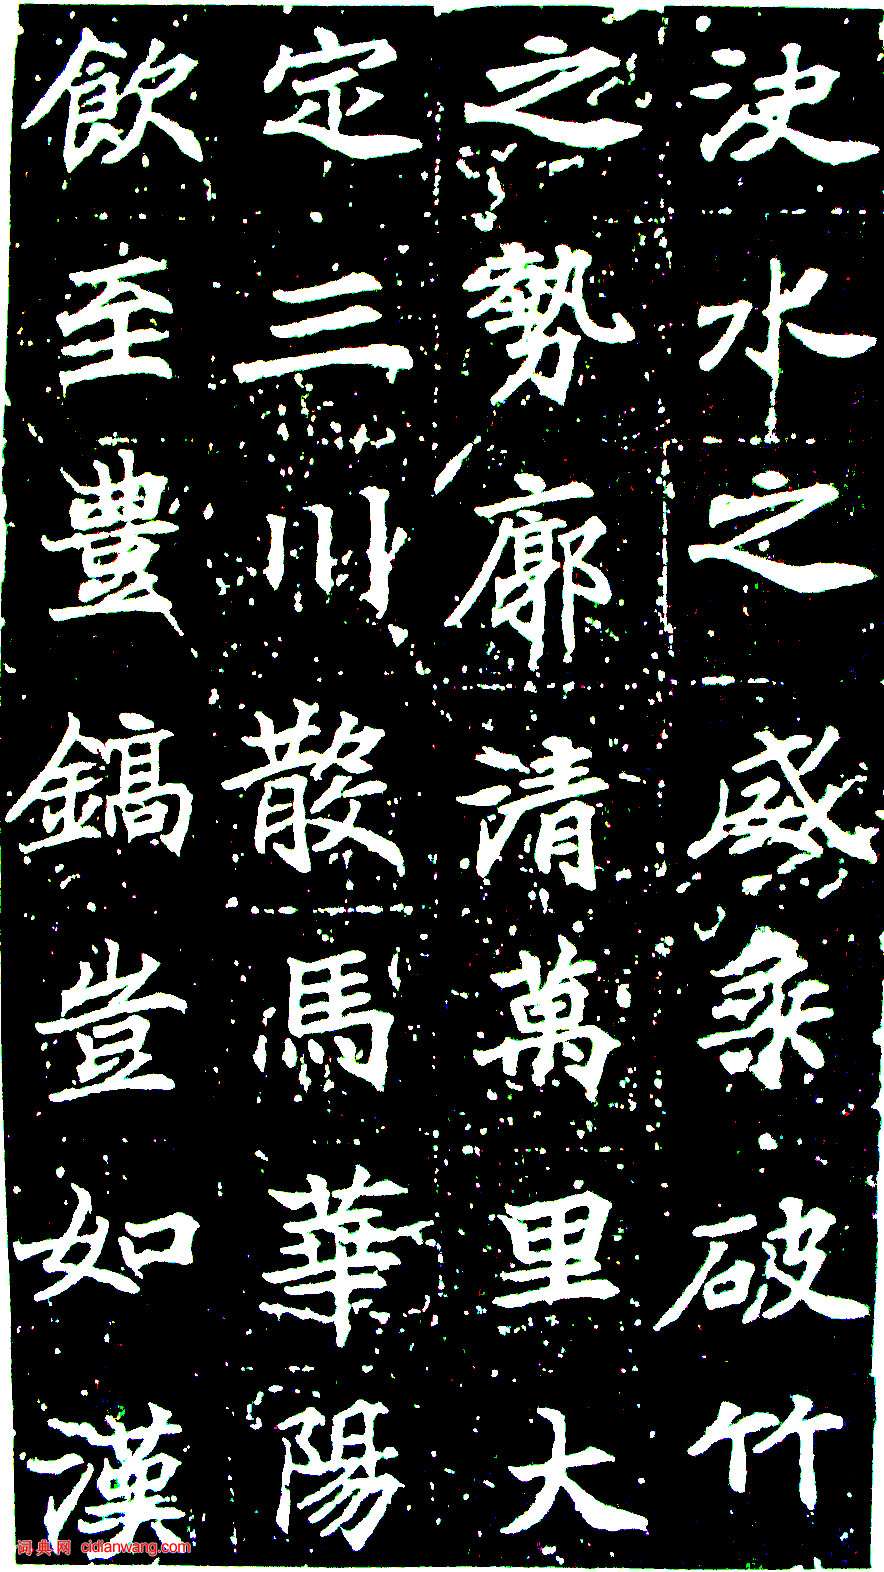 決水之威乘破竹
之勢廓清萬里大
定三川散馬華陽
飲至豐鎬豈如漢
词典网 cidianwang.com